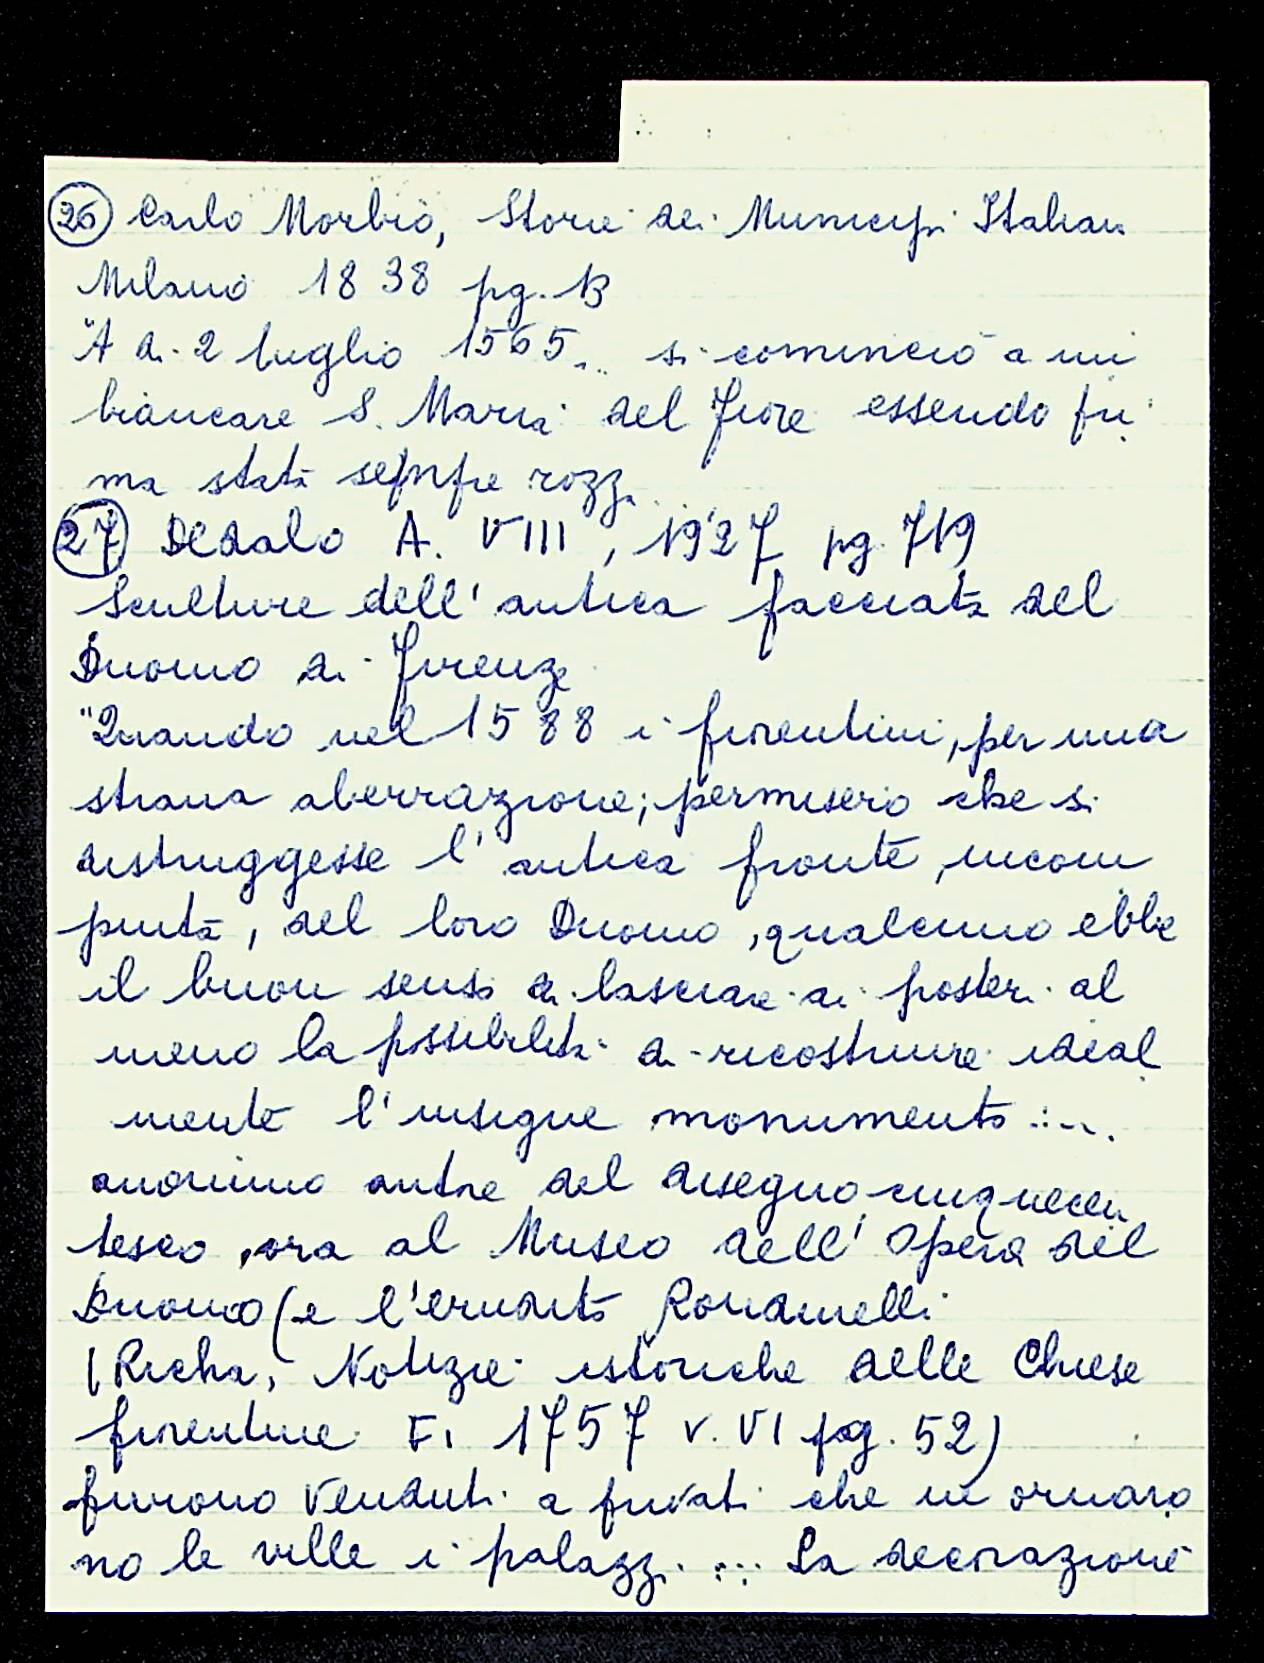 26 Carlo Morbio, Storie dei Municipi Italiani
Milano 1838 pg. 13
"A di 2 luglio 1565... si cominciò a im
biancare S. Maria del Fiore essendo pri
ma stata sempre rozza
27 Dedalo A. VIII, 1927 pg. 719
Sculture dell'antica facciata del
Duomo di Firenze
"Quando nel 1588 i fiorentini, per una
strana aberrazione, permisero che si
distruggesse l'antica fronte, incom
piuta, del loro Duomo, qualcuno ebbe
il buon senso di lasciare ai posteri al
meno la possibilità di ricostruire ideal
mente l'insigne monumento ....
anonimo autore del disegno cinquecen
tesco, ora al Museo dell'Opera del
Duomo (e l'erudito Rondinelli
(Richa, Notizie istoriche delle Chiese
fiorentine Fi 1757 v. VI pag. 52)
furono venduti a privati che ne ornaro
no le ville i palazzi .... La decorazione